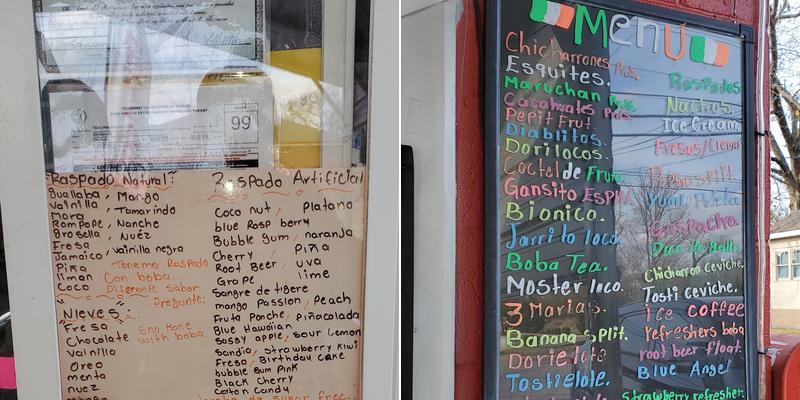 99
Raspado Natural:
Guallaba, Mango
Vainilla, Tamarindo
Mora
Rompope, Nanche
Grosella, Nuez
Fresa
Jamaica, Vainilla negra
Piña
liman
Coco
Tenemo Raspado
Con boba.
Diferente sabor
Pregunte:
"Nieves"
Fresa
Chocolate
Vainilla
Oreo
menta
nuez
Sno Kone
with boba
Raspado Artificial
Coco nut, Platano
blue Rasp berry
Bubble gum, naranja
Cherry, Piña
Root Beer, uva
Grape, lime
Sangre de tigere
mango Passion, Peach
Fruta Ponche, Piñacolada
Blue Hawaiian
Sassy apple, sour Lemon
Sandia, Strawberry Kiwi
Fresa, Birthday Cake
bubble Gum Pink
Black Cherry
Cotton Candy
sugar free
Menú
Chicharrones
Esquites.
Maruchan
Cacahuates
Pepit Frut.
Diablitos.
Dorilocos.
Coctel de Fruta.
Gansito
Bionico.
Jarrito loco.
Boba Tea.
Moster loco.
3 Marias.
Banana Split.
Dorielote
Tostielote.
Raspados
Nachos.
Ice Cream
Fresas/Crema
Gaspacha
Pico de Gallo
Chicharron ceviche.
Tosti ceviche.
ice coffee
refreshers boba
root beer float.
Blue Angel
strawberry refresher.